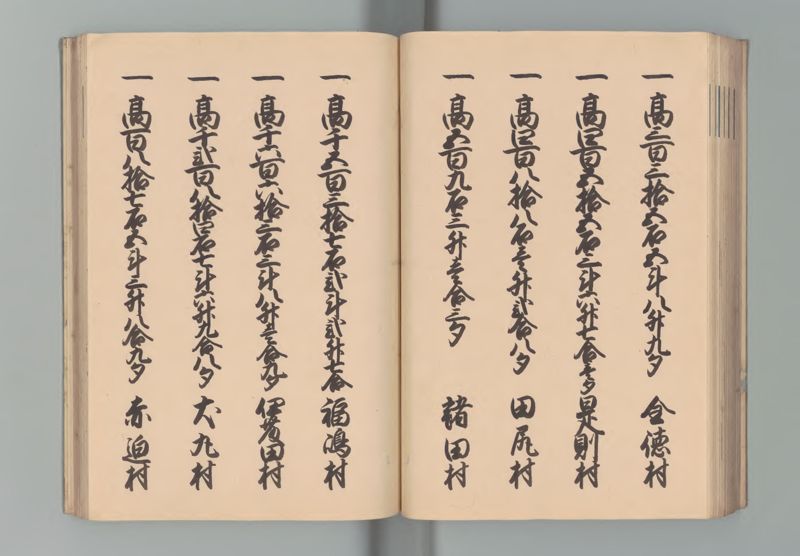 一高三百三拾五石五斗八升九夕 全徳村
一高四百五拾五石三斗六升七合壱夕 是則村
一高四百八拾八石壱升弐合八夕 田尻村
一高五百九石三升壱合三夕 諸田村
一高千五百三拾七石弐斗弐升七合 福嶋村
一高千六百六拾三石三斗八升壱合九夕 伊藤田村
一高千弐百八拾四石七斗六升九合八夕 犬丸村
一高百八拾七石五斗三升八合九夕 赤迫村